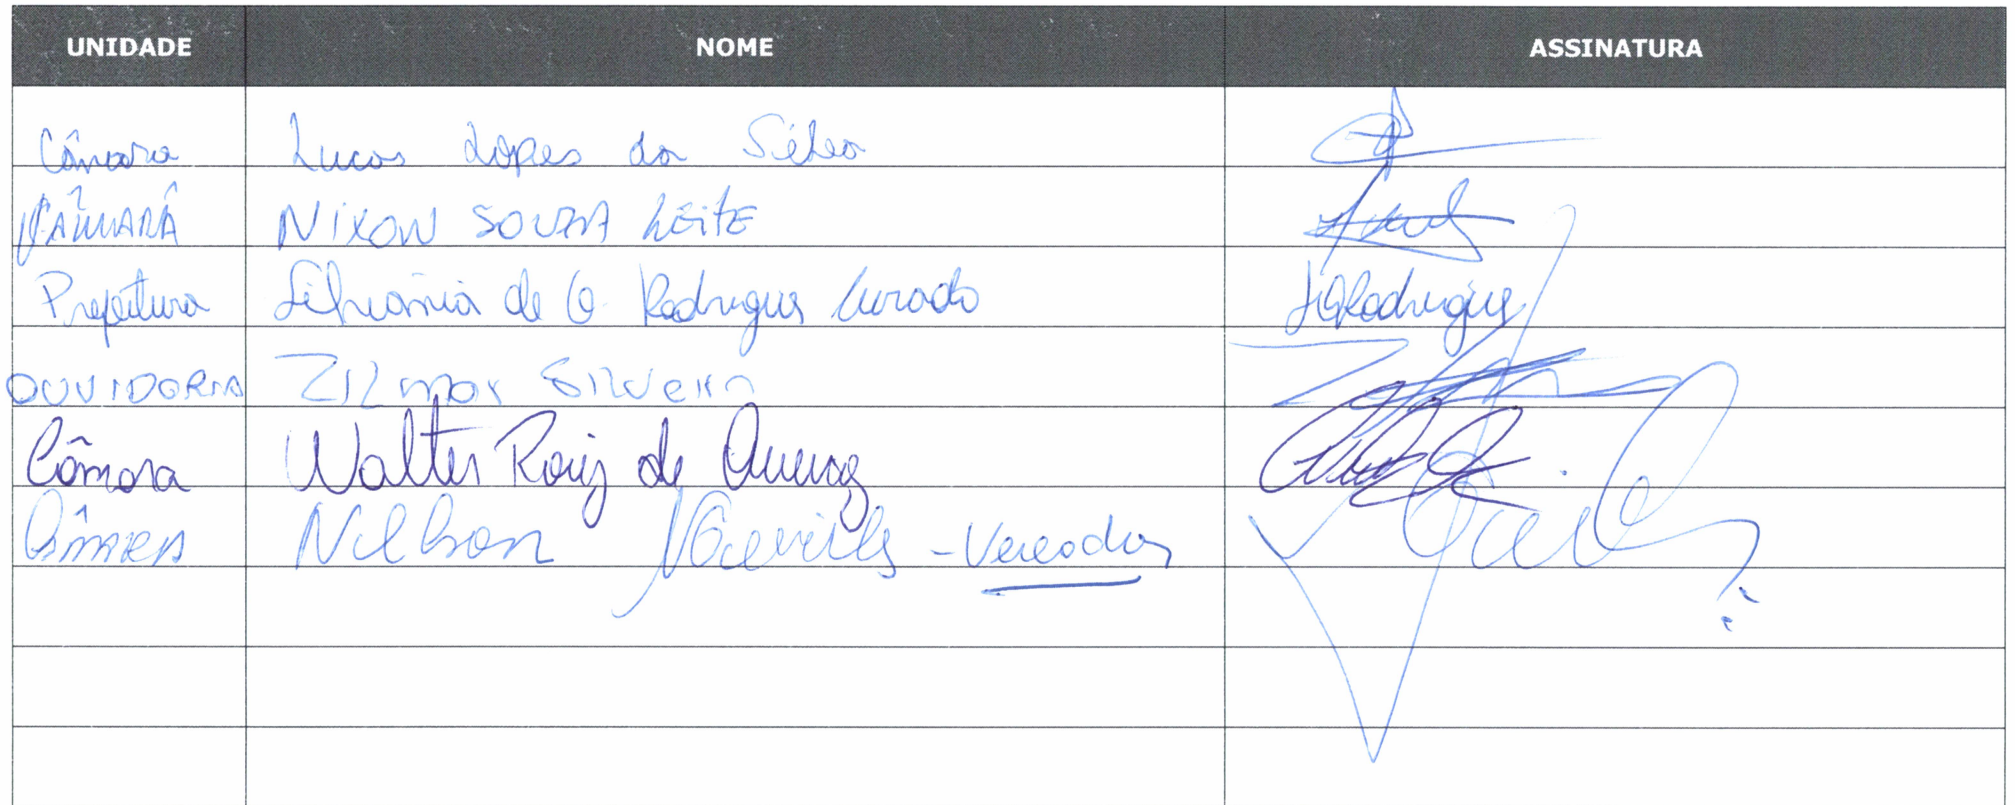 UNIDADE NOME ASSINATURA
Câmara Lucas Lopes da Silva
CÂMARA NIXON SOUZA LEITE
Prefeitura de O. Rodrigues Curado Rodrigues
OUVIDORIA ZILMAR SILVEIRA
Câmara Walter Roiz de Queiroz
CÂMARA Nelson - Vereador